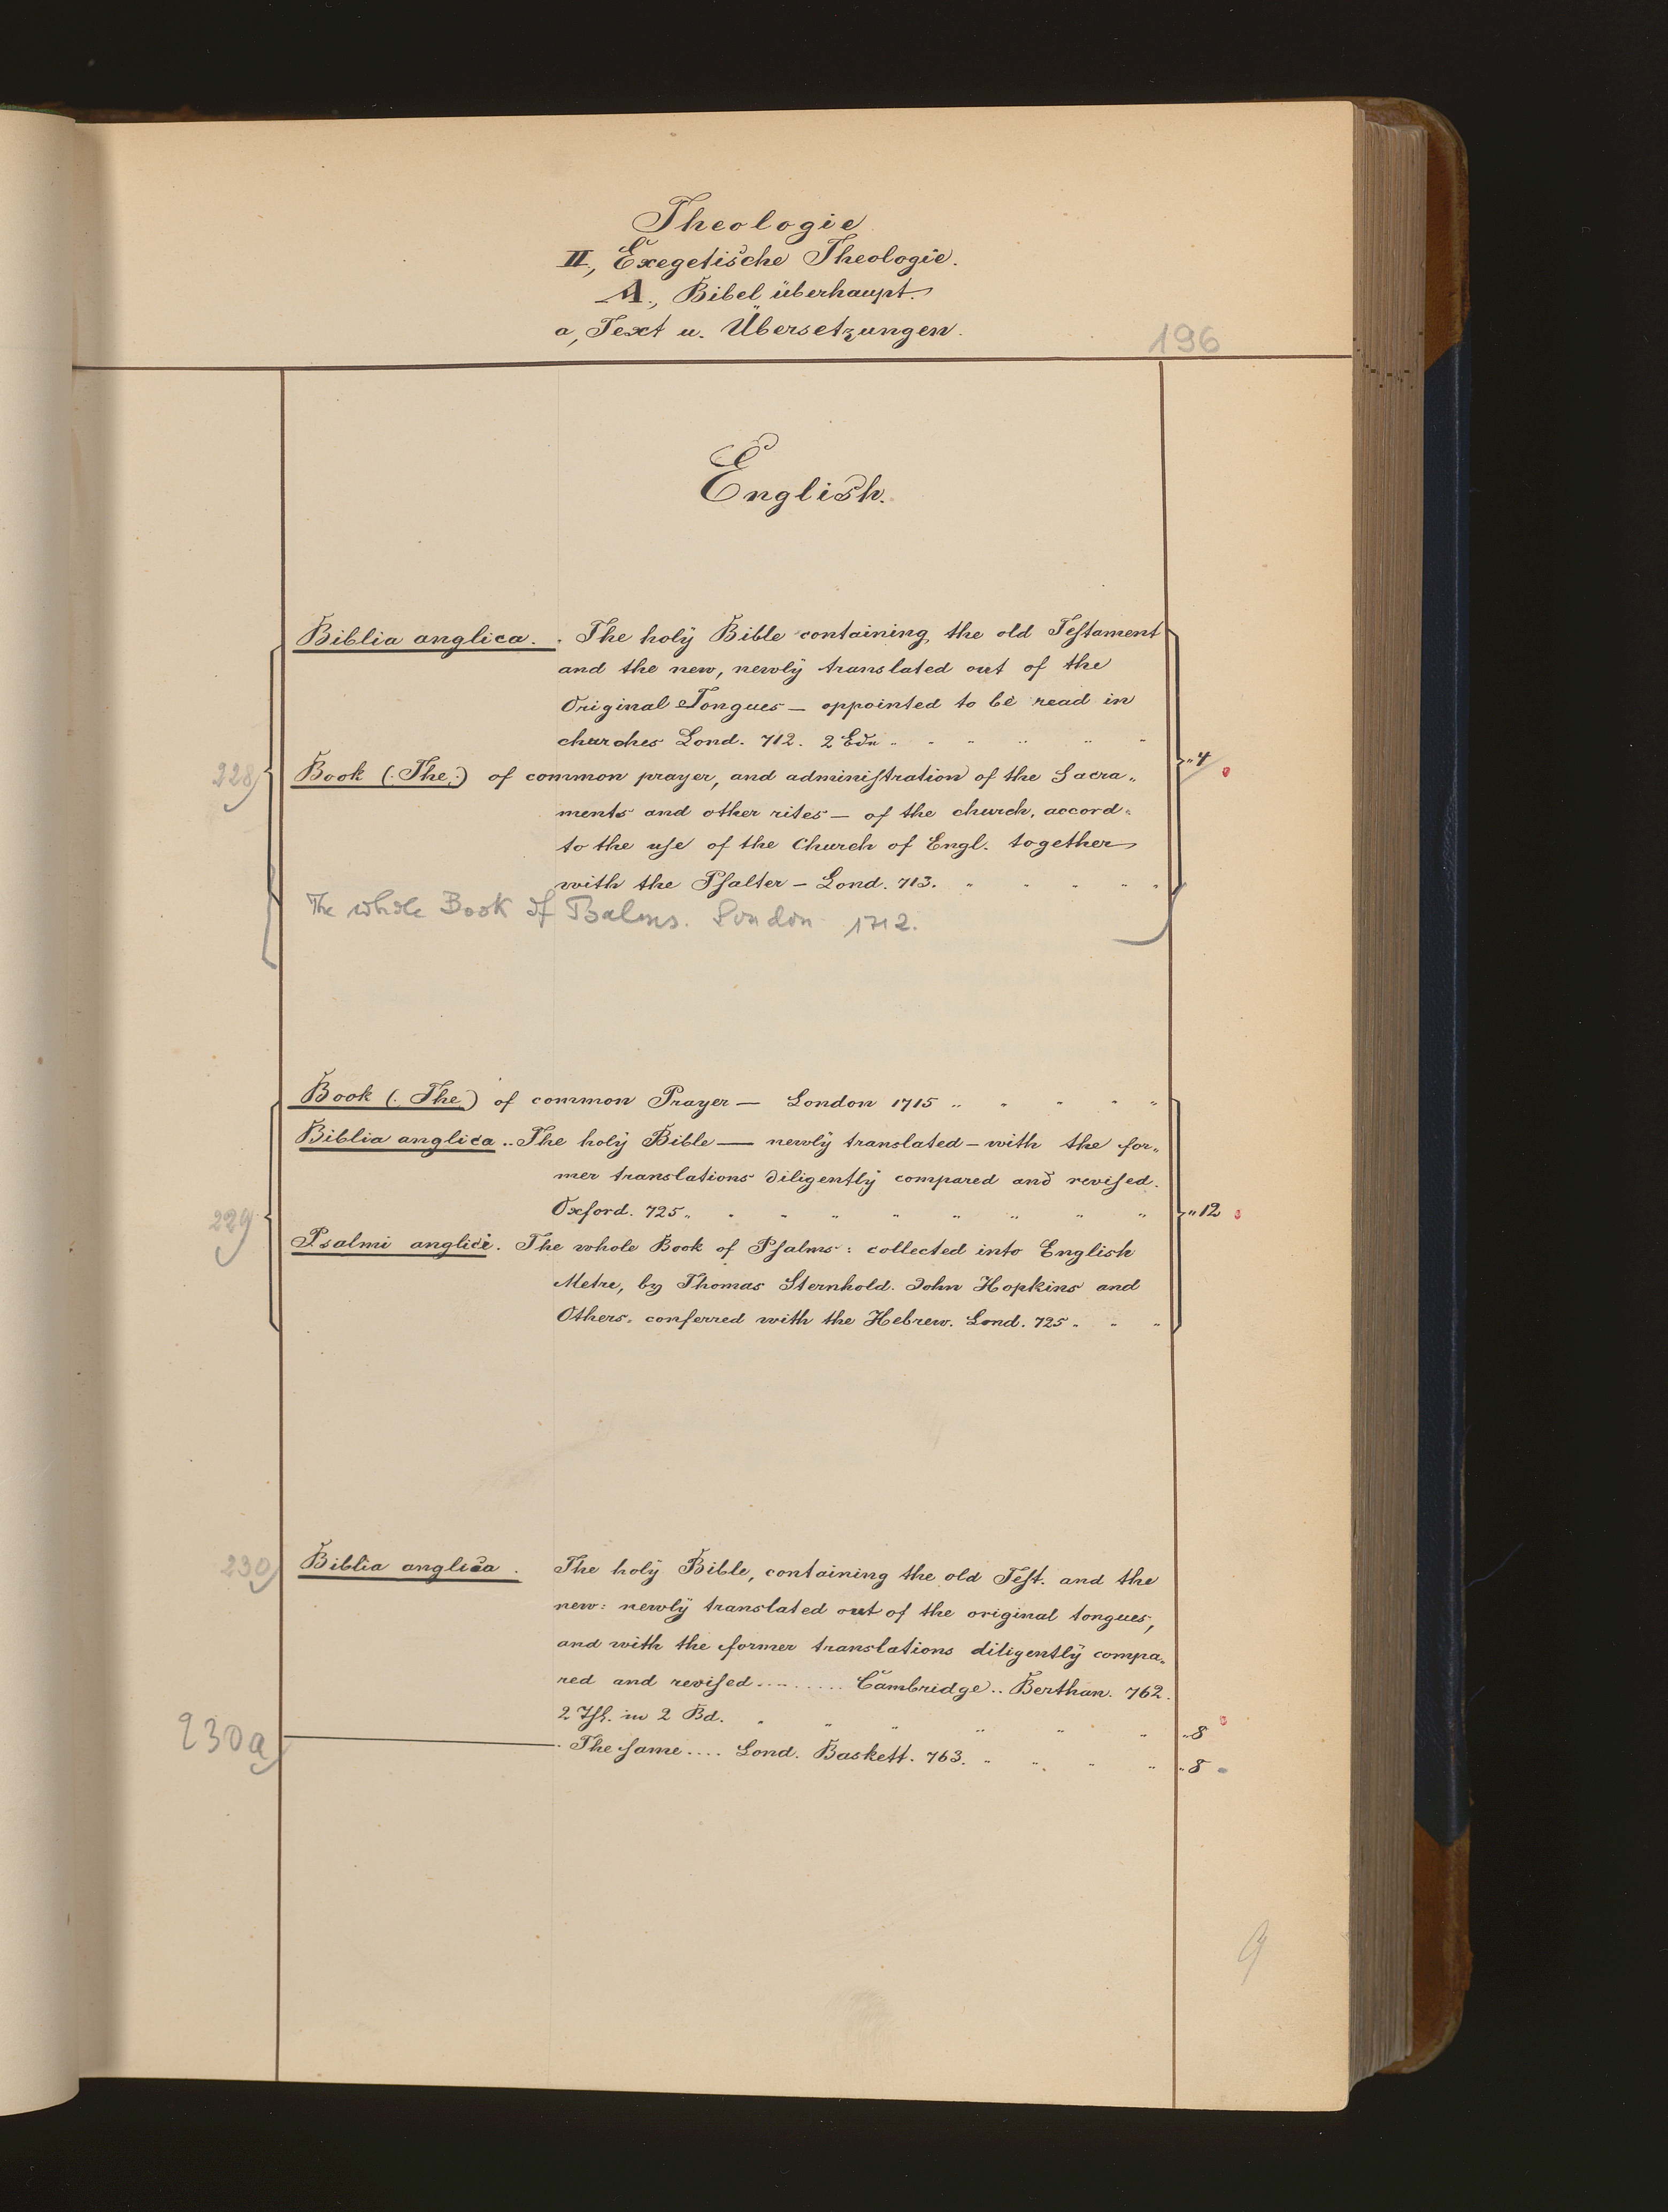 Theologie
II., Exegetische Theologie.
A., Bibel überhaupt.
a, Text u. Übersetzungen.
196
English.
Biblia anglica. . The holÿ Bible containing the old Testament
and the new, newlÿ translated out of the
Original Tongues — appointed to be read in
churches Lond. 712. 2 Edn " " " " " "
228 Book (: The :) of common prayer, and administration of the Sacra„ „4
ments and other rites — of the church, accord„
to the use of the Church of Engl. together
with the Psalter — Lond. 713. " " " " "
The whole Book of Psalms. London 1712.
Book (: The.) of common Prayer — London 1715 " " " " "
Biblia anglica .. The holÿ Bible — newlÿ translated — with the for„
mer translations diligentlÿ compared and revised.
229 Oxford. 725 " " " " " " " " " „12
Psalmi anglici. The whole Book of Psalms : collected into English
Metre, by Thomas Sternhold. John Hopkins and
Others, conferred with the Hebrew. Lond. 725 " " "
230 Biblia anglica . The holÿ Bible, containing the old Test. and the
new: newlÿ translated out of the original tongues,
and with the former translations diligentlÿ compa„
red and revised ........ Cambridge .. Berthan. 762.
2 Thl. in 2 Bd. " " " " " " „8
230a — . The same .... Lond. Baskett. 763. " " " " „8
9